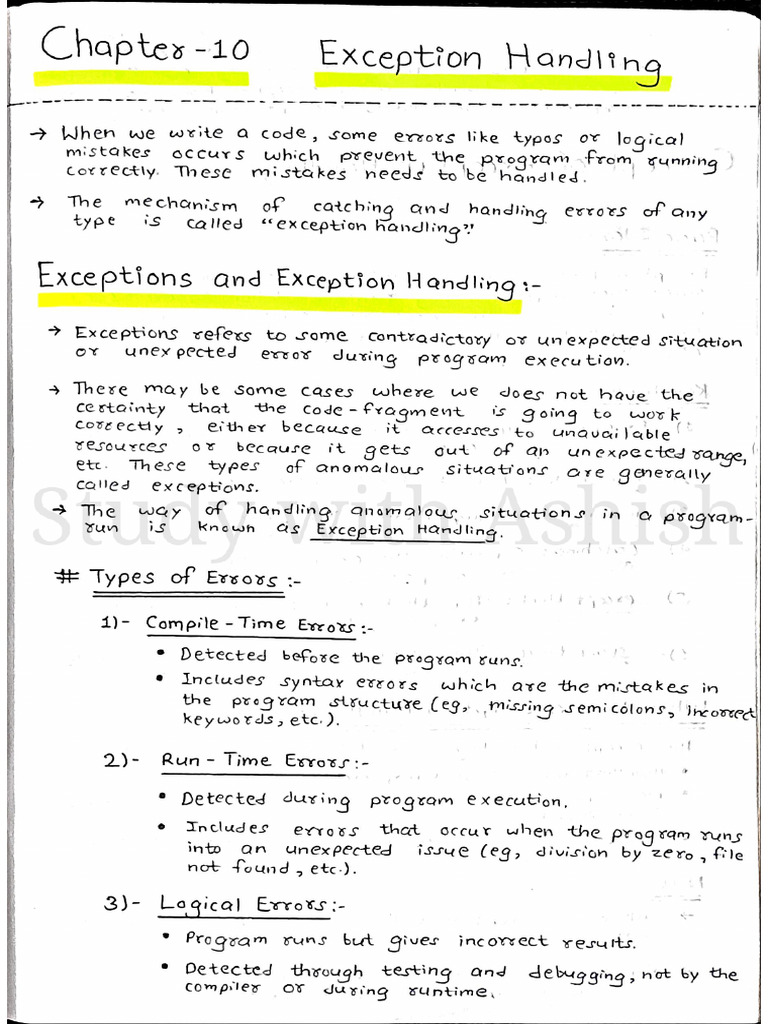 Chapter-10 Exception Handling
→ When we write a code, some errors like typos or logical
mistakes occurs which prevent the program from running
correctly. These mistakes needs to be handled.
→ The mechanism of catching and handling errors of any
type is called "exception handling".
Exceptions and Exception Handling :-
→ Exceptions refers to some contradictory or unexpected situation
or unexpected error during program execution.
→ There may be some cases where we does not have the
certainty that the code-fragment is going to work
correctly, either because it accesses to unavailable
resources or because it gets out of an unexpected range,
etc. These types of anomalous situations are generally
called exceptions.
→ The way of handling anomalous situations in a program-
run is known as Exception Handling.
Study with Ashish
# Types of Errors :-
1)- Compile-Time Errors :-
• Detected before the program runs.
• Includes syntax errors which are the mistakes in
the program structure (eg, missing semicolons, incorrect
keywords, etc.).
2)- Run-Time Errors :-
• Detected during program execution.
• Includes errors that occur when the program runs
into an unexpected issue (eg, division by zero, file
not found, etc.).
3)- Logical Errors :-
• Program runs but gives incorrect results.
• Detected through testing and debugging, not by the
compiler or during runtime.